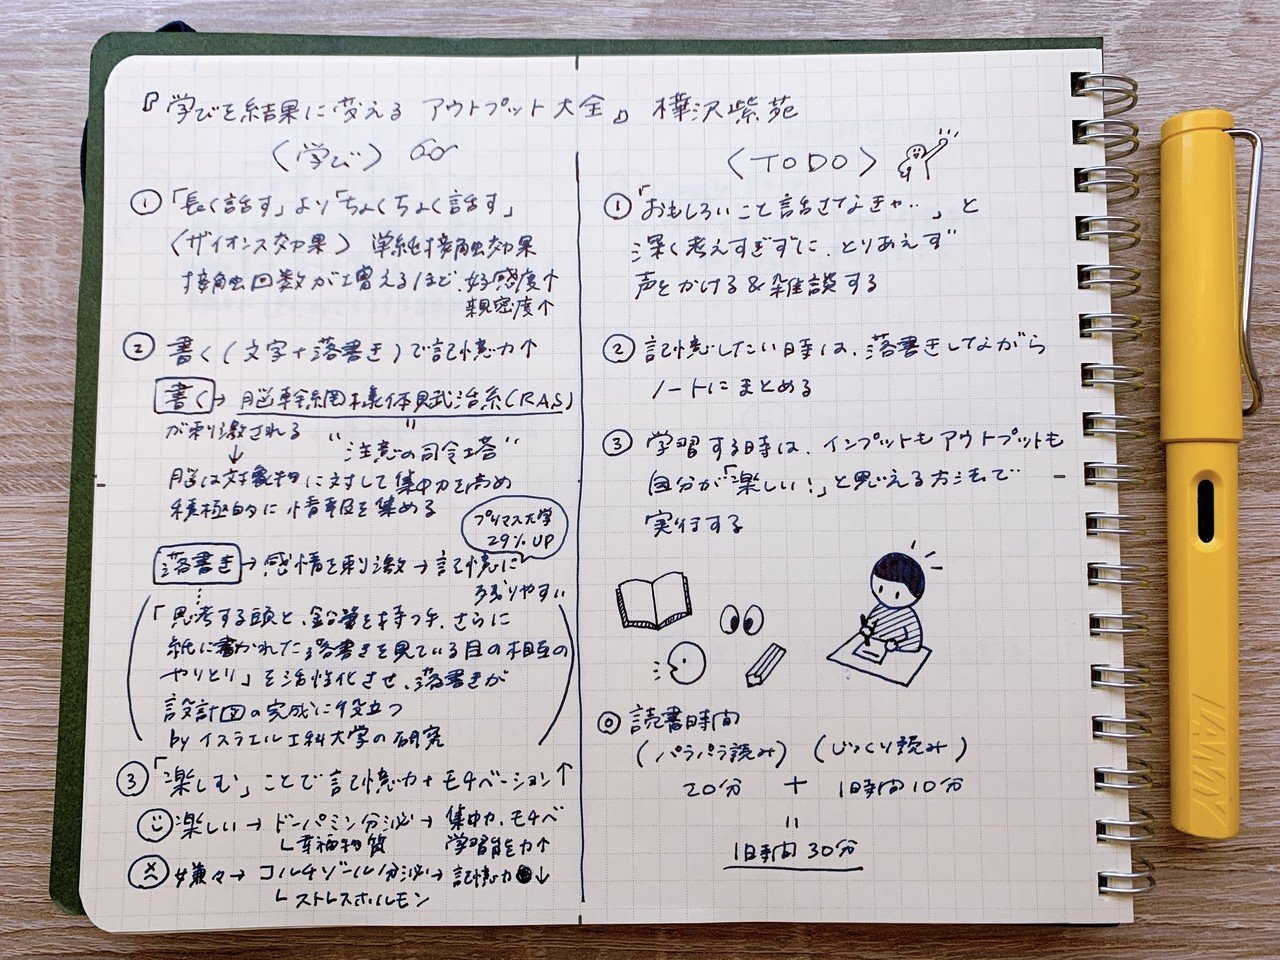 『学びを結果に変える アウトプット大全』 樺沢紫苑
〈学び〉
① 「長く話す」より「ちょくちょく話す」
〈ザイオンス効果〉 単純接触効果
接触回数が増えるほど、好感度↑
親密度↑
② 書く(文字+落書き)で記憶力↑
書く→脳幹網様体賦活系(RAS)
が刺激される "注意の司令塔"
↓
脳は対象物に対して集中力を高め
積極的に情報を集める
プリマス大学
29% UP
落書き→感情を刺激→記憶に
残りやすい
「思考する頭と、鉛筆を持つ手、さらに
紙に書かれた落書きを見ている目の相互の
やりとり」を活性化させ、落書きが
設計図の完成に役立つ
by イスラエル工科大学の研究
③ 「楽しむ」ことで記憶力+モチベーション↑
楽しい→ドーパミン分泌→集中力、モチベ
└幸福物質 学習能力↑
嫌々→コルチゾール分泌→記憶力↓
└ストレスホルモン
〈TODO〉
① 「おもしろいこと話さなきゃ‥」と
深く考えすぎずに、とりあえず
声をかける&雑談する
② 記憶したい時は、落書きしながら
ノートにまとめる
③ 学習する時は、インプットもアウトプットも
自分が「楽しい!」と思える方法で
実行する
◎ 読書時間
(パラパラ読み) (じっくり読み)
20分 + 1時間10分
=
1時間30分
LAMY